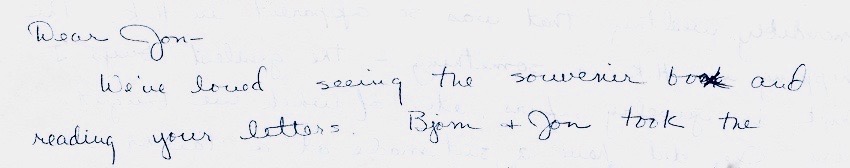 Dear Jon-
We've loved seeing the souvenir book and
reading your letters. Bjorn + Jon took the